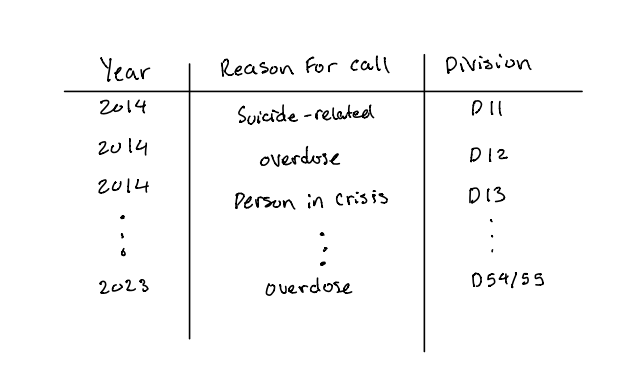 Year Reason For call Division
2014 Suicide-related D11
2014 overdose D12
2014 Person in crisis D13
2023 overdose D54/55